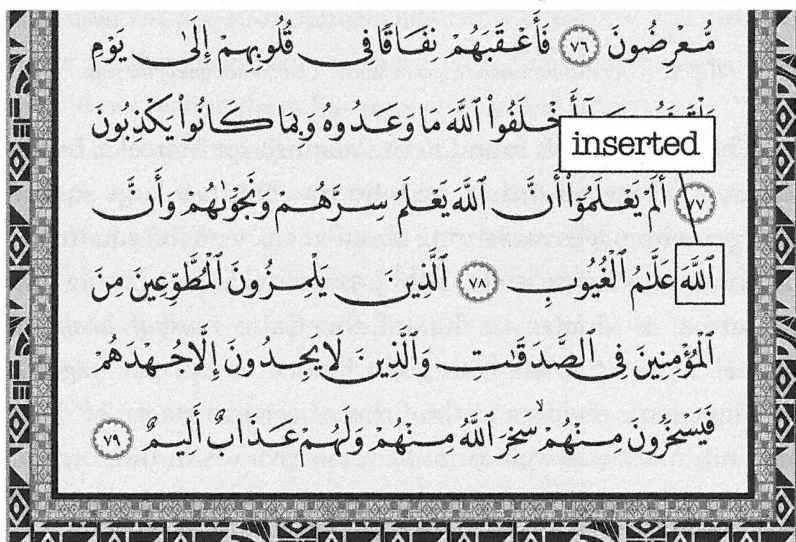 مُّعْرِضُونَ ٧٦ فَأَعْقَبَهُمْ نِفَاقًا فِى قُلُوبِهِمْ إِلَىٰ يَوْمِ
أَخْلَفُوا۟ ٱللَّهَ مَا وَعَدُوهُ وَبِمَا كَانُوا۟ يَكْذِبُونَ
inserted
٧٧ أَلَمْ يَعْلَمُوٓا۟ أَنَّ ٱللَّهَ يَعْلَمُ سِرَّهُمْ وَنَجْوَىٰهُمْ وَأَنَّ
ٱللَّهَ عَلَّٰمُ ٱلْغُيُوبِ ٧٨ ٱلَّذِينَ يَلْمِزُونَ ٱلْمُطَّوِّعِينَ مِنَ
ٱلْمُؤْمِنِينَ فِى ٱلصَّدَقَٰتِ وَٱلَّذِينَ لَا يَجِدُونَ إِلَّا جُهْدَهُمْ
فَيَسْخَرُونَ مِنْهُمْ ۙ سَخِرَ ٱللَّهُ مِنْهُمْ وَلَهُمْ عَذَابٌ أَلِيمٌ ٧٩